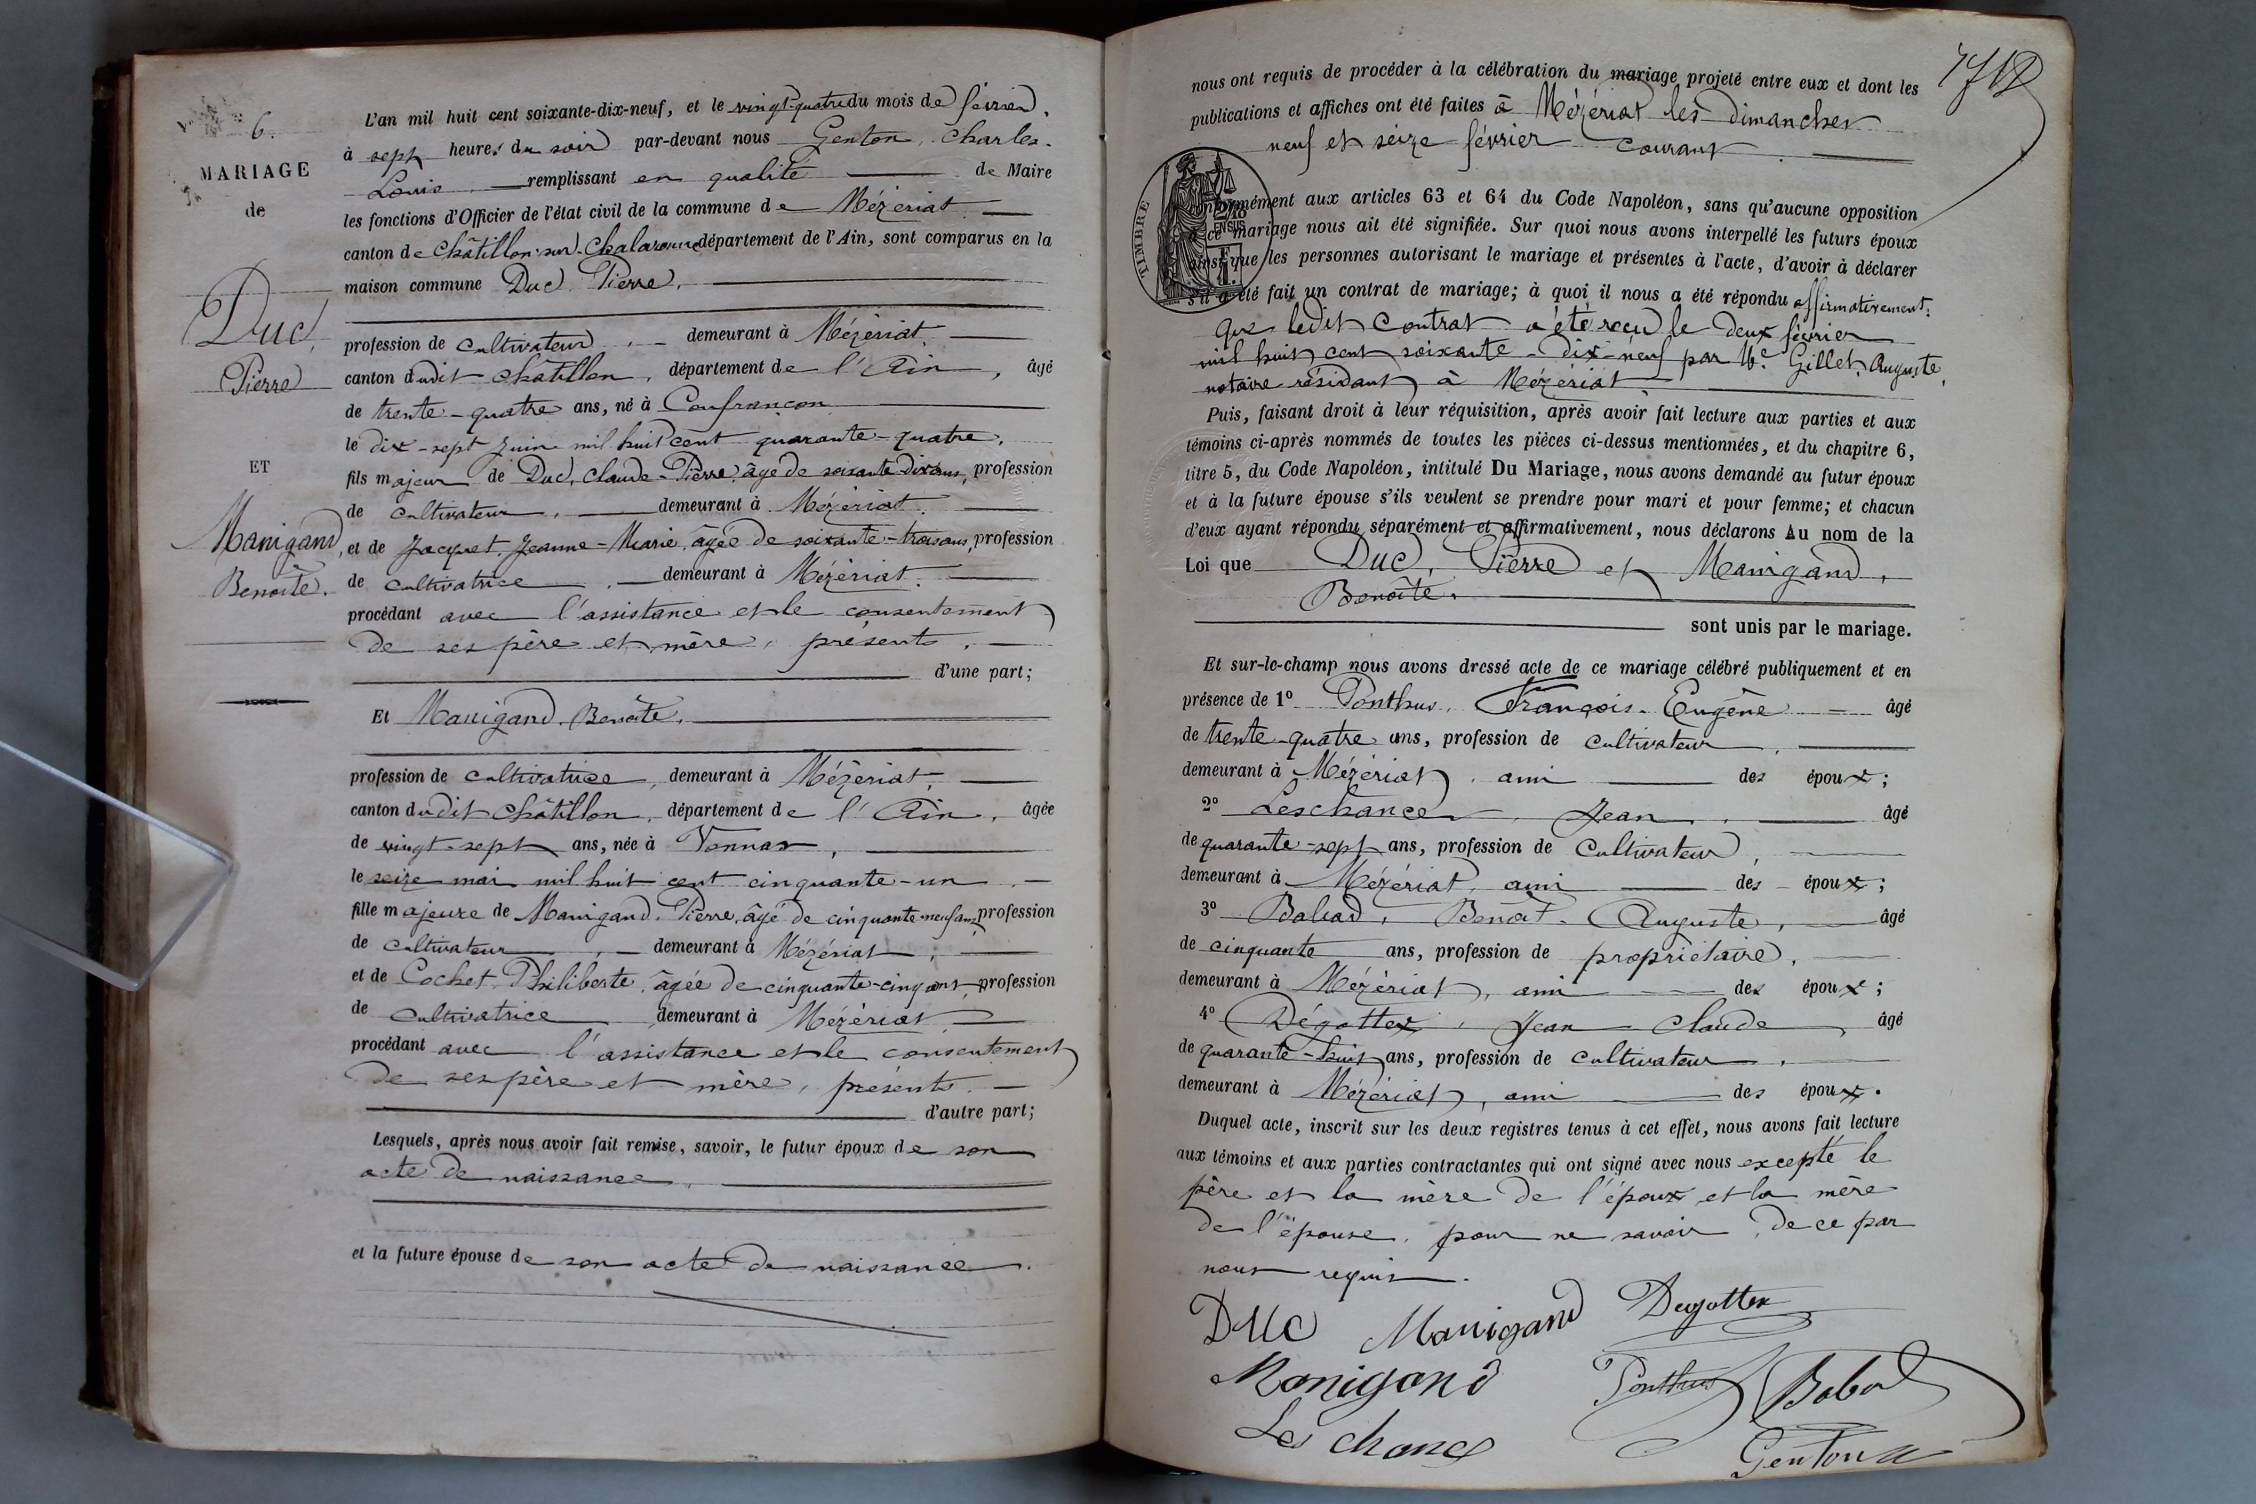 6.
MARIAGE
de
Duc,
Pierre
ET
Manigand,
Benoîte.
L'an mil huit cent soixante-dix-neuf, et le vingt-quatre du mois de février,
à sept heures du soir par-devant nous Genton, Charles-
Louis remplissant en qualité de Maire
les fonctions d'Officier de l'état civil de la commune de Mézériat
canton de Châtillon-sur-Chalaronne département de l'Ain, sont comparus en la
maison commune Duc Pierre,
profession de cultivateur, demeurant à Mézériat,
canton dudit Châtillon, département de l'Ain, âgé
de trente-quatre ans, né à Confrançon
le dix-sept juin mil huit cent quarante-quatre,
fils majeur de Duc, Claude-Pierre, âgé de soixante-dix ans, profession
de cultivateur, demeurant à Mézériat,
et de Jacquet, Jeanne-Marie, âgée de soixante-trois ans, profession
de cultivatrice, demeurant à Mézériat,
procédant avec l'assistance et le consentement
de ses père et mère, présents,
d'une part;
Et Manigand, Benoîte,
profession de cultivatrice, demeurant à Mézériat,
canton dudit Châtillon, département de l'Ain, âgée
de vingt-sept ans, née à Vonnas,
le seize mai mil huit cent cinquante-un,
fille majeure de Manigand, Pierre, âgé de cinquante-neuf ans, profession
de cultivateur, demeurant à Mézériat,
et de Cochet, Philiberte, âgée de cinquante-cinq ans, profession
de cultivatrice demeurant à Mézériat,
procédant avec l'assistance et le consentement
de ses père et mère, présents.
d'autre part;
Lesquels, après nous avoir fait remise, savoir, le futur époux de son
acte de naissance,
et la future épouse de son acte de naissance.
nous ont requis de procéder à la célébration du mariage projeté entre eux et dont les
publications et affiches ont été faites à Mézériat les dimanches
neuf et seize février courant.
TIMBRE
conformément aux articles 63 et 64 du Code Napoléon, sans qu'aucune opposition
à ce mariage nous ait été signifiée. Sur quoi nous avons interpellé les futurs époux
ainsi que les personnes autorisant le mariage et présentes à l'acte, d'avoir à déclarer
s'il a été fait un contrat de mariage; à quoi il nous a été répondu affirmativement,
que ledit contrat a été reçu le deux février
mil huit cent soixante-dix-neuf par Me Gillet, Auguste,
notaire résidant à Mézériat
Puis, faisant droit à leur réquisition, après avoir fait lecture aux parties et aux
témoins ci-après nommés de toutes les pièces ci-dessus mentionnées, et du chapitre 6,
titre 5, du Code Napoléon, intitulé Du Mariage, nous avons demandé au futur époux
et à la future épouse s'ils veulent se prendre pour mari et pour femme; et chacun
d'eux ayant répondu séparément et affirmativement, nous déclarons Au nom de la
Loi que Duc, Pierre et Manigand,
Benoîte,
sont unis par le mariage.
Et sur-le-champ nous avons dressé acte de ce mariage célébré publiquement et en
présence de 1° Ponthus, François-Eugène âgé
de trente-quatre ans, profession de cultivateur,
demeurant à Mézériat, ami des époux;
2° Leschance, Jean, âgé
de quarante-sept ans, profession de cultivateur,
demeurant à Mézériat, ami des époux;
3° Babad, Benoît-Auguste, âgé
de cinquante ans, profession de propriétaire,
demeurant à Mézériat, ami des époux;
4° Dégottex, Jean-Claude, âgé
de quarante-huit ans, profession de cultivateur,
demeurant à Mézériat, ami des époux.
Duquel acte, inscrit sur les deux registres tenus à cet effet, nous avons fait lecture
aux témoins et aux parties contractantes qui ont signé avec nous excepté le
père et la mère de l'époux et la mère
de l'épouse, pour ne savoir, de ce par
nous requis.
Duc Manigand Degottex
Manigand Ponthus Babad
Les chance Genton